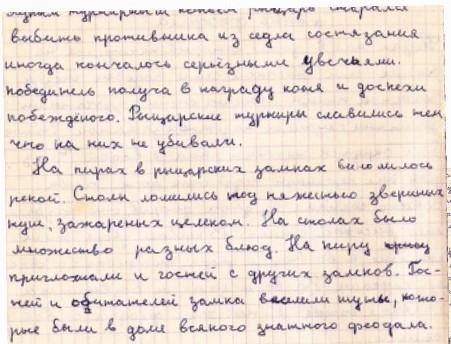 турнирным копьём рыцарь старался
выбить противника из седла состязания
иногда кончалось серьёзными увечьями.
победитель получа в награду коня и доспехи
побеждёного. Рыцарские турниры славились тем,
что на них не убивали.
На пирах в рыцарских замках вино лилось
рекой. Столы ломились под тяжестью звериных
туш, зажареных целеком. На столах было
множество разных блюд. На пиру
приглохали и гостей с других замков. Гос-
тей и обитателей замка веселили шуты, кото-
рые были в доме всякого знатного феодала.